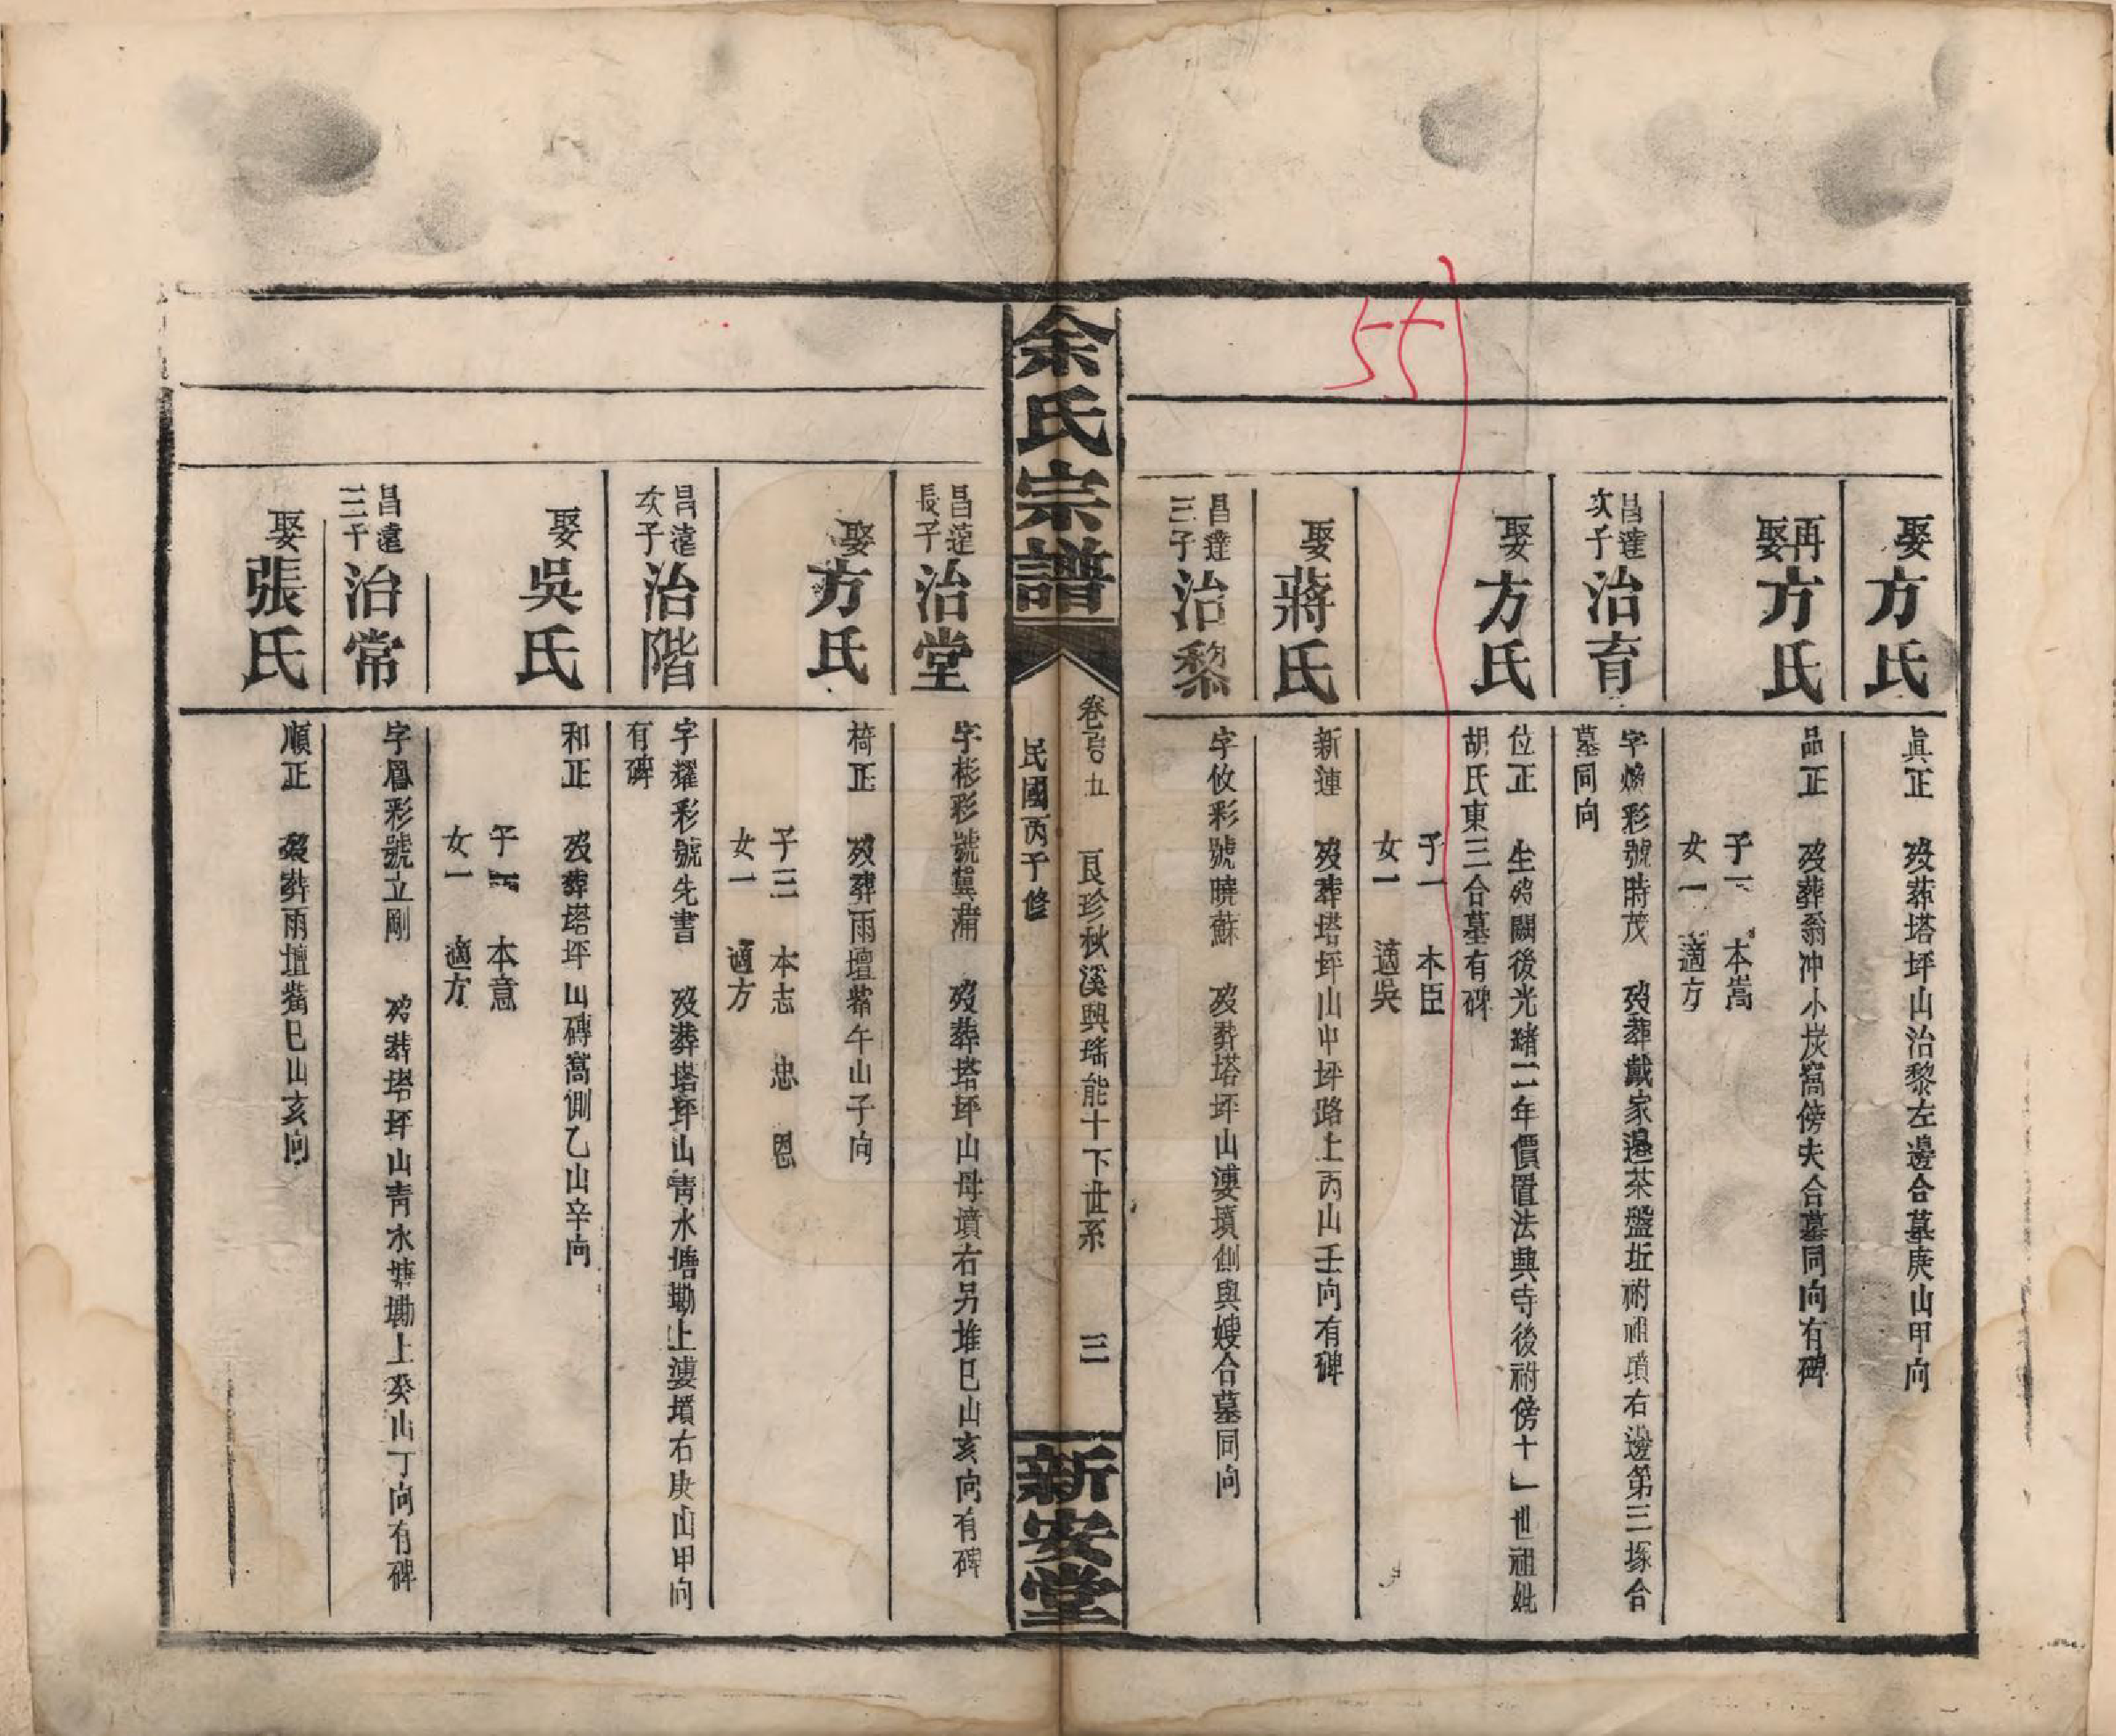 55
娶方氏
眞正 歿葬塔坪山治黎左邊合墓庚山甲向
再娶方氏
品正 歿葬翁冲小炭窩傍夫合墓同向有碑
子一 本嵩
女一 適方
昌達次子治育
字煥彩號時茂 歿葬戴家邊茶盤坵祔祖墳右邊第三塚合
墓同向
娶方氏
位正 生歿闕後光緒二年價置法興寺後祔傍十一世祖妣
胡氏東三合墓有碑
子一 本臣
女一 適吳
娶蔣氏
新連 歿葬塔坪山中坪路上丙山壬向有碑
昌達三子治黎
字攸彩號曉蘇 歿葬塔坪山凄墳側與嫂合墓同向
余氏宗譜
卷 五 良珍秋溪興瑤能十下世系 三
民國丙子修
新安堂
昌蓮長子治堂
字彬彩號冀蒲 歿葬塔坪山母墳右另堆巳山亥向有碑
娶方氏
椅正 歿葬雨壇 午山子向
子三 本志 忠 恩
女一 適方
昌蓮次子治階
字耀彩號先書 歿葬塔坪山青水塘墈上凄墳右庚山甲向
有碑
娶吳氏
和正 歿葬塔坪山磚窩側乙山辛向
子一 本意
女一 適方
昌蓮三子治常
字鳳彩號立剛 歿葬塔坪山青水塘墈上癸山丁向有碑
娶張氏
順正 歿葬雨壇 巳山亥向